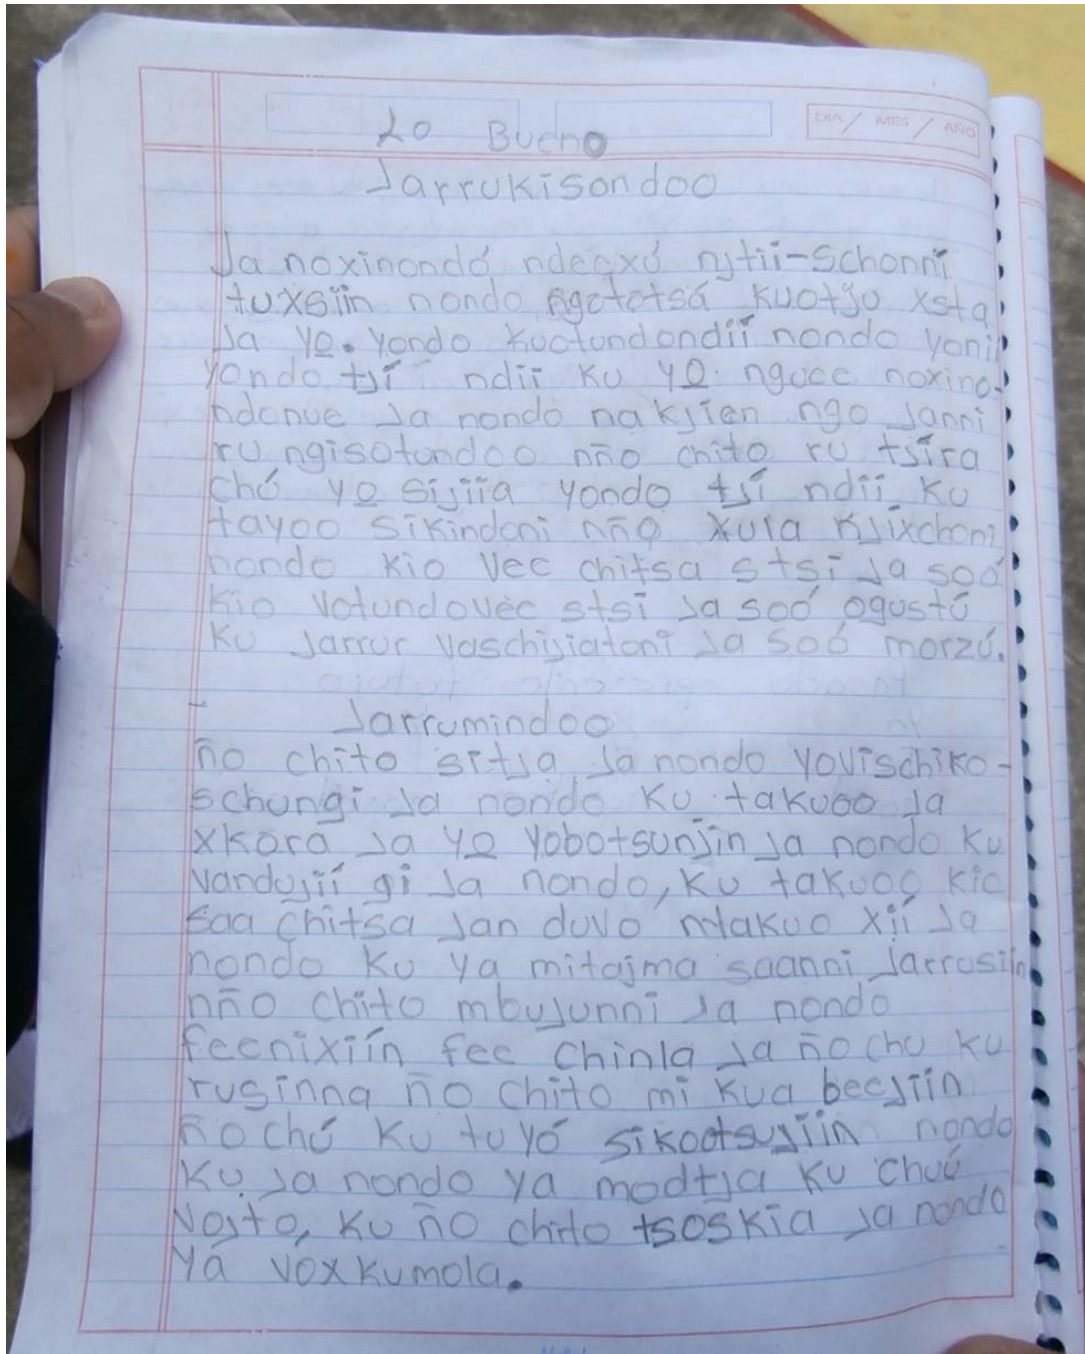 Lo Bueno
DIA / MES / AÑO
Jarrukisondoo
Ja noxinondó ndecxó njtii-Schonni
tuxsiin nondo ngototsá kuotju xsta
Ja yo. Yondo kuotundondií nondo yonii
yondo tjí ndii ku yo. ngucc noxino-
ndonue Ja nondo nakjien ngo Janni
ru ngisotundoo nño chito ru tsíra
chó yo sijiia yondo tjí ndii ku
tayoo sikindoni nño xula kjixchoni
nondo kio Vee chitsa stsi Ja soó
kio votundovec stsi Ja soó ogustó
ku Jarrur vaschijiatoni Ja Soó morzó.
Jarrumindoo
ño chito sitja Ja nondo yovischiko-
schungi Ja nondo ku takuoo Ja
xkora Ja yo yobotsunjin Ja nondo ku
vandujií gi Ja nondo, ku takuoo kio
saa chitsa Jan duvo ndakuo xjí Ja
nondo ku ya mitajma saanni Jarrosiin
nño chito mbujunni Ja nondo
feenixiín fee chinla Ja ño cho ku
rusinna ño chito mi kua beejiin
ño chó ku tuyó sikootsujiin nondo
ku Ja nondo ya modtja ku chuó
vojto, ku ño chito tsoskia Ja nondo
yá voxkumola.